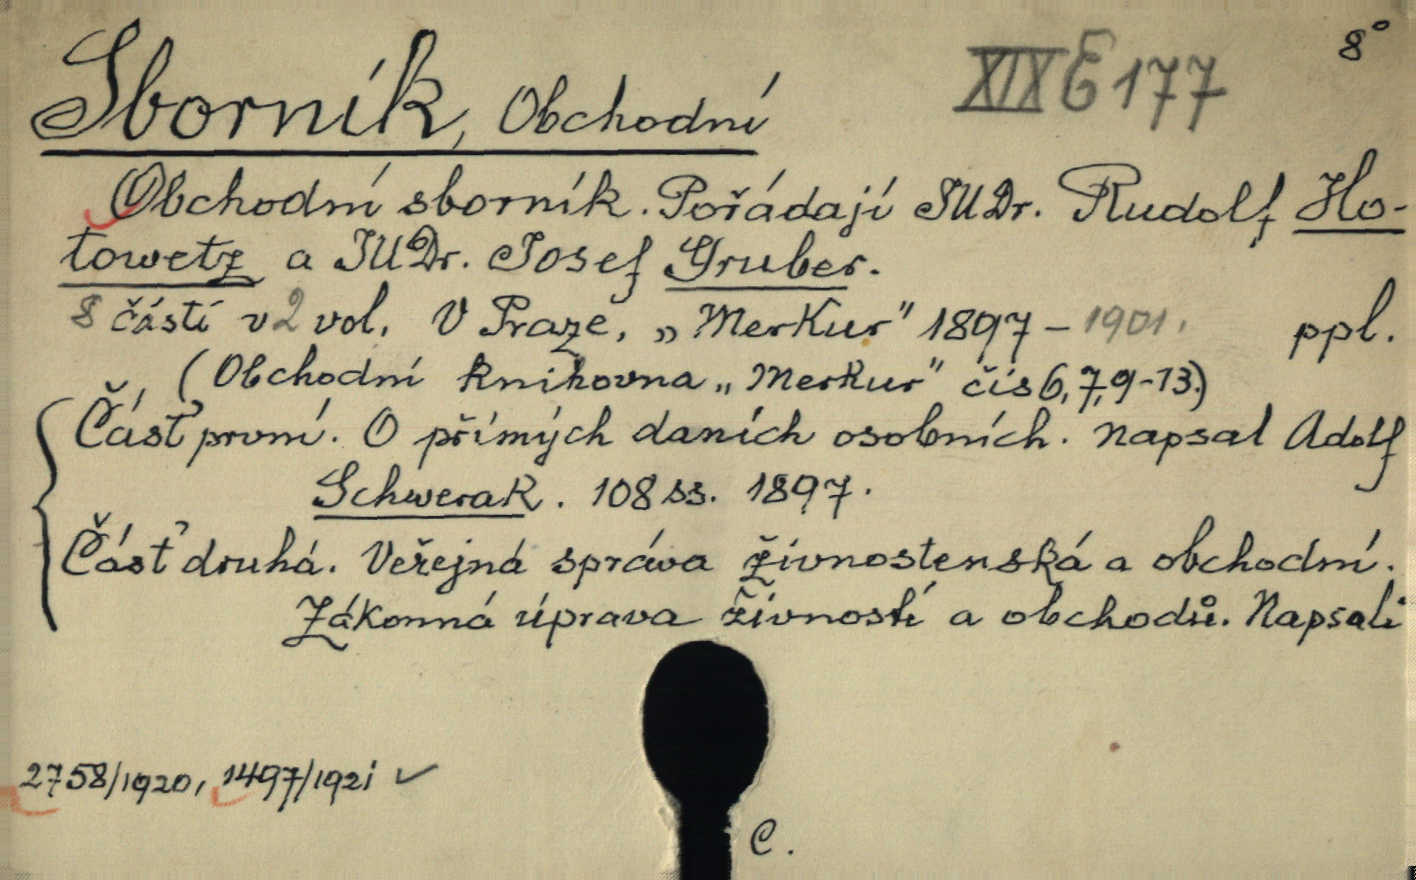 8°
XIX E 177
Sborník, Obchodní
Obchodní sborník. Pořádají JUDr. Rudolf Ho-
towetz a JUDr. Josef Gruber.
8 částí v 2 vol. V Praze, „Merkur" 1897 - 1901. ppl.
(Obchodní knihovna „Merkur" čís 6, 7, 9-13.)
Částʼ první. O přímých daních osobních. Napsal Adolf
Schwerak. 108 ss. 1897.
Částʼ druhá. Veřejná správa živnostenská a obchodní.
Zákonná úprava živností a obchodů. Napsali
2758/1920, 1497/1921 ✓
C.